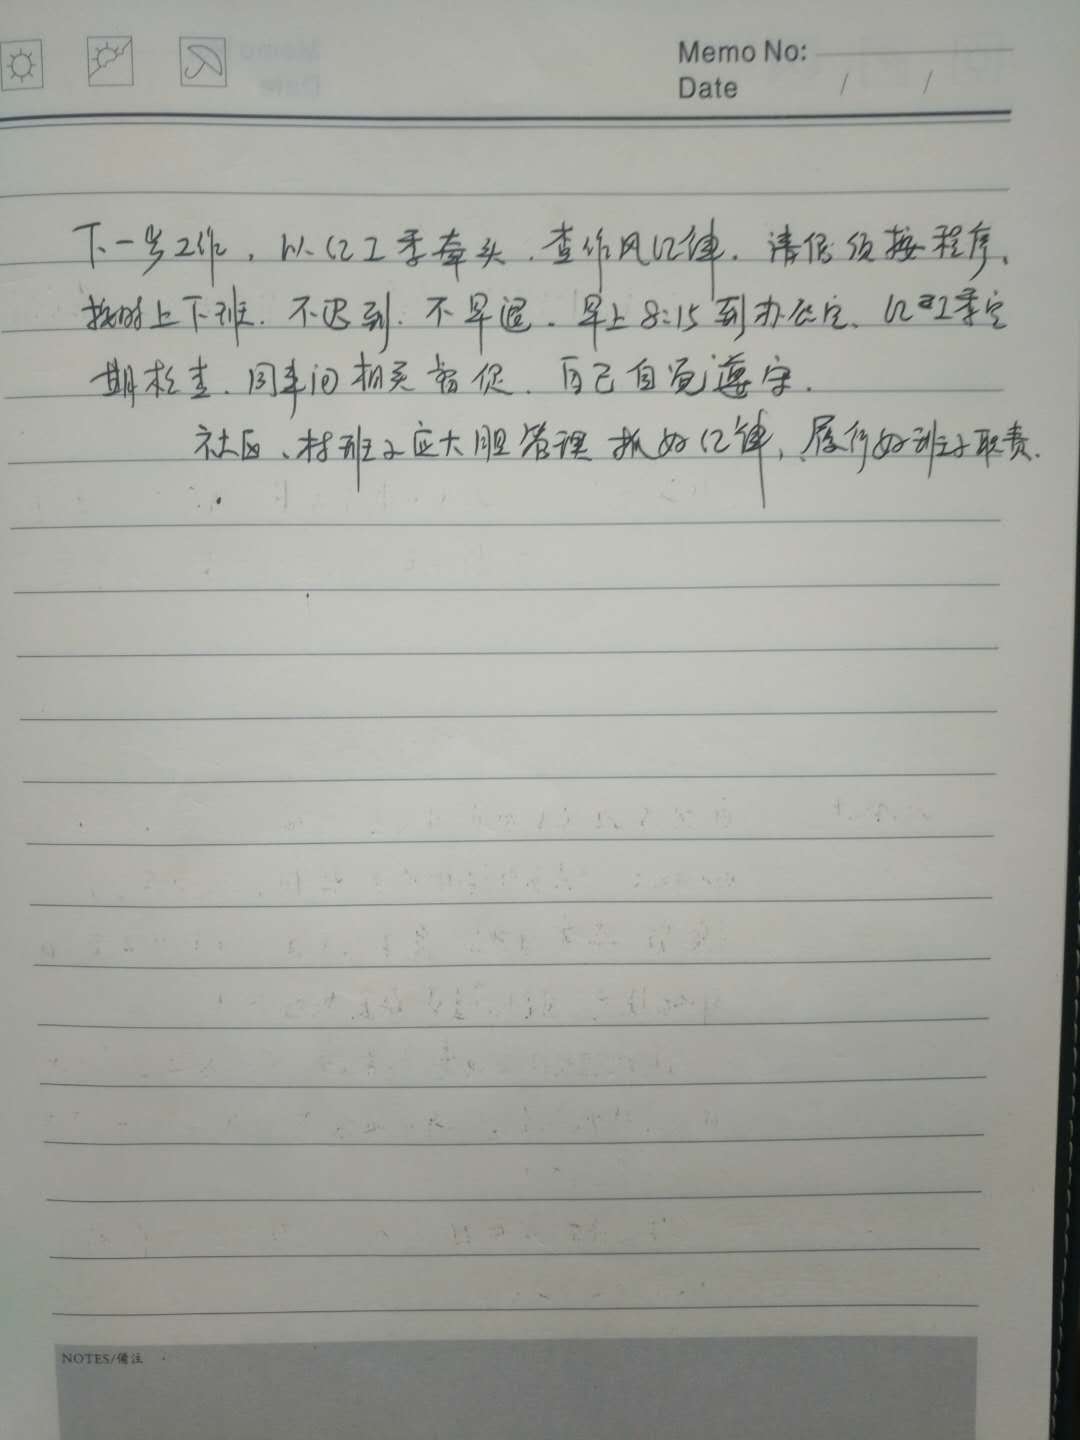 Memo No:
Date / /
下一步工作，以纪工委牵头，查作风纪律，请假须按程序、
按时上下班，不迟到，不早退，早上8:15到办公室、纪工委定
期检查，同事间相互督促，自己自觉遵守．
社区、村班子应大胆管理 抓好纪律，履行好班子职责．
NOTES/備注